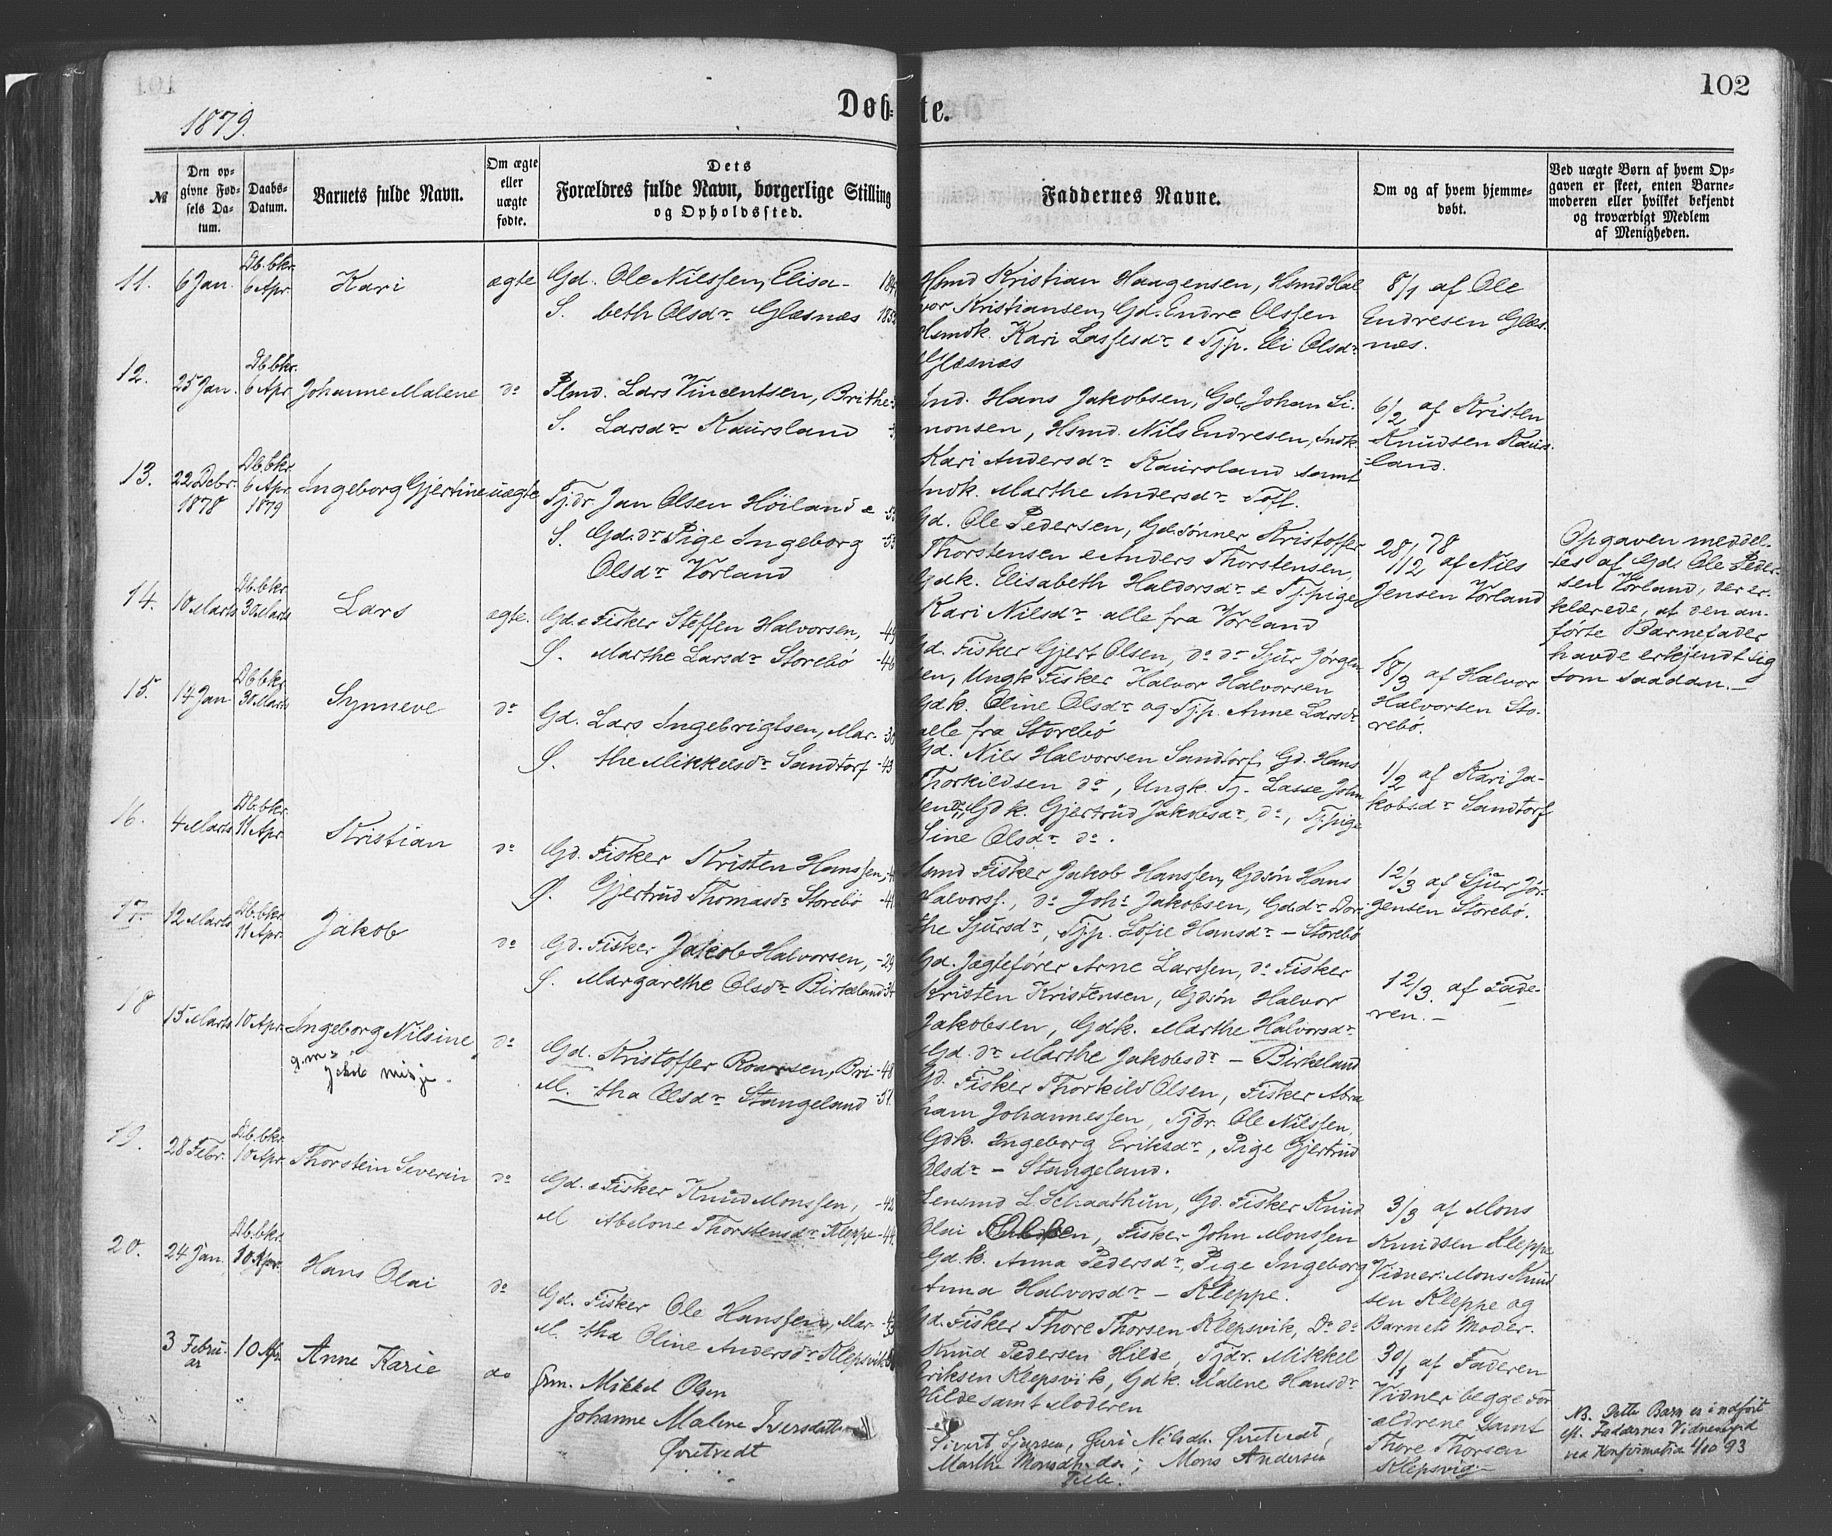 102
1879.
Døbte.
№
Den opgivne Fødsels Datum.
Daabs-Datum.
Barnets fulde Navn.
Om ægte eller uægte fødte.
Dets Forældres fulde Navn, borgerlige Stilling og Opholdssted.
Faddernes Navne.
Om og af hvem hjemmedøbt.
Ved uægte Børn af hvem Opgaven er skeet, enten Barnemoderen eller hvilket bekjendt og troværdigt Medlem af Menigheden.
11. 6 Jan. Db. bkr. 6 Apr. Kari ægte
Gd. Ole Nilssen, Elisa-
S. beth Olsdr Glæsnæs
Hsmd Kristian Haagensen, Hsmd Hal
vor Kristiansen, Gd. Endre Olssen
Hsmdk. Kari Lassesdr & Tjp. Eli Olsdr
Glæsnæs
8/1 af Ole
Endresen Glæs-
næs.
12. 25 Jan. Db. bkr. 6 Apr. Johanne Malene do
Plmd. Lars Vincentsen, Brithe
S. Larsdr Kaursland
Ind. Hans Jakobsen, Gd. Johan Si-
monsen, Hsmd. Nils Endresen, Indk.
Kari Andersdr Kaursland samt
Indk. Marthe Andersdr Toft.
6/2 af Kristen
Knudsen Kaurs-
land.
13. 22 Debr. 1878 Db. bkr. 6 Apr. 1879 Ingeborg Gjertine uægte
Tj.dr. Jan Olsen Höiland & -53
S. Gd.dr Pige Ingeborg -53
Olsdr Vorland
Gd. Ole Pedersen, Gd.sönner Kristoffer
Thorstensen & Anders Thorstensen,
Gdk. Elisabeth Haldorsdr & Tj.pige
Kari Nilsdr alle fra Vorland
28/12 78 af Nils
Jensen Vorland
Opgaven meddel-
tes af Gd. Ole Peder-
sen Vorland, der er-
klærede, at den an-
förte Barnefader
havde erkjendt sig
som saadan.-
14. 10 Marts Db. bkr. 30 Marts Lars ægte.
Gd. & Fisker Steffen Halvorsen, -49
S. Marthe Larsdr Storebö -46
Gd. Fisker Gjert Olsen, do do Sjur Jörgen
sen, Ungk Fisker Halvor Halvorsen
Gdk. Oline Olsdr og Tj.p. Anne Larsdr
alle fra Storebö
18/3 af Halvor
Halvorsen Sto-
rebö.
15. 14 Jan Db. bkr. 30 Marts Synneve do
Gd. Lars Ingebrigtsen, Mar- -36
S. the Mikkelsdr Sandtorf -43
Gd. Nils Halvorsen Sandtorf, Gd. Hans
Thorkildsen do, Ungk Tj. Lasse John
sen do, Gdk. Gjertrud Jaknesdr, do, Tj.pige
Sine Olsdr do.
1/2 af Kari Ja-
kobsdr Sandtorf
16. 4 Marts Db. bkr. 11 Apr. Kristian do
Gd. Fisker Kristen Hanssen,
S. Gjertrud Thomasdr Storebö
Hsmd Fisker Jakob Hanssen, Gdsön Hans
Halvorss., do Johs Jakobsen, Gd.dr Dor-
the Sjursdr, Tj.p. Sofie Hansdr - Storebö
12/3 af Sjur Jör-
gensen Storebö.
17. 12 Marts Db. bkr. 11 Apr. Jakob do
Gd. Fisker Jakob Halvorsen, -29
S. Margarethe Olsdr Birkeland
Gd. Jægtefører Arne Larssen, do Fisker
Kristen Kristensen, Gdsön Halvor
Jakobsen, Gdk. Marthe Halvorsdr
Gd. dr Marthe Jakobsdr - Birkeland
12/3. af Fade-
ren.-
18 15 Marts 10 Apr. Ingeborg Nilsine do
g.m.
Gd. Kristoffer Roarsen, Bri -48
M. -tha Olsdr Stangeland -51.
Gd. Fisker Thorkild Olsen, Fisker Abra
ham Johannessen, Tjdr. Ole Nilssen,
Gdk. Ingeborg Eriksdr, Pige Gjertrud
Olsdr - Stangeland.
19. 28 Febr. Db. bkr. 10 Apr. Thorstein Severin do
Gd. & Fisker Knud Monssen, -42
M Abelone Thorstensdr Kleppe -44
Lensmd L Schaathun, Gd. Fisker Knud
Olai Olsen, Fisker John Monssen
Gd.k. Anna Pedersdr, Pige Ingeborg
Anna Halvorsdr - Kleppe.
3/3 af Mons
Knudsen Kleppe
Vidner: Mons Knud
sen Kleppe og
Barnets Moder.
20. 24 Jan. Db. bkr. 10 Apr. Hans Olai do
Gd. Fisker Ole Hanssen, Mar-
M. tha Oline Andersdr Klepsvik
Gd. Fisker Thore Thorsen Klepsvik, Do do
Knud Pedersen Hilde, Tjdr. Mikkel
Eriksen Klepsvik, Gdk. Malene Hansdr
Hilde samt Moderen
30/1 af Faderen
Vidner begge For-
ældrene samt
Thore Thorsen
Klepsvig
3 Februar 10 Apr Anne Karie do
Grm. Mikkel Olsen
Johanne Malene Iversdatter
Øvretvedt
Sivert Sjursen, Guri Nilsdtr. Øvretvedt,
Marthe Monsdtr. do; Mons Andersen
NB. Dette Barn er indført
eft. Faddernes Vidnesbyrd
ved Konfirmation 1/10 93